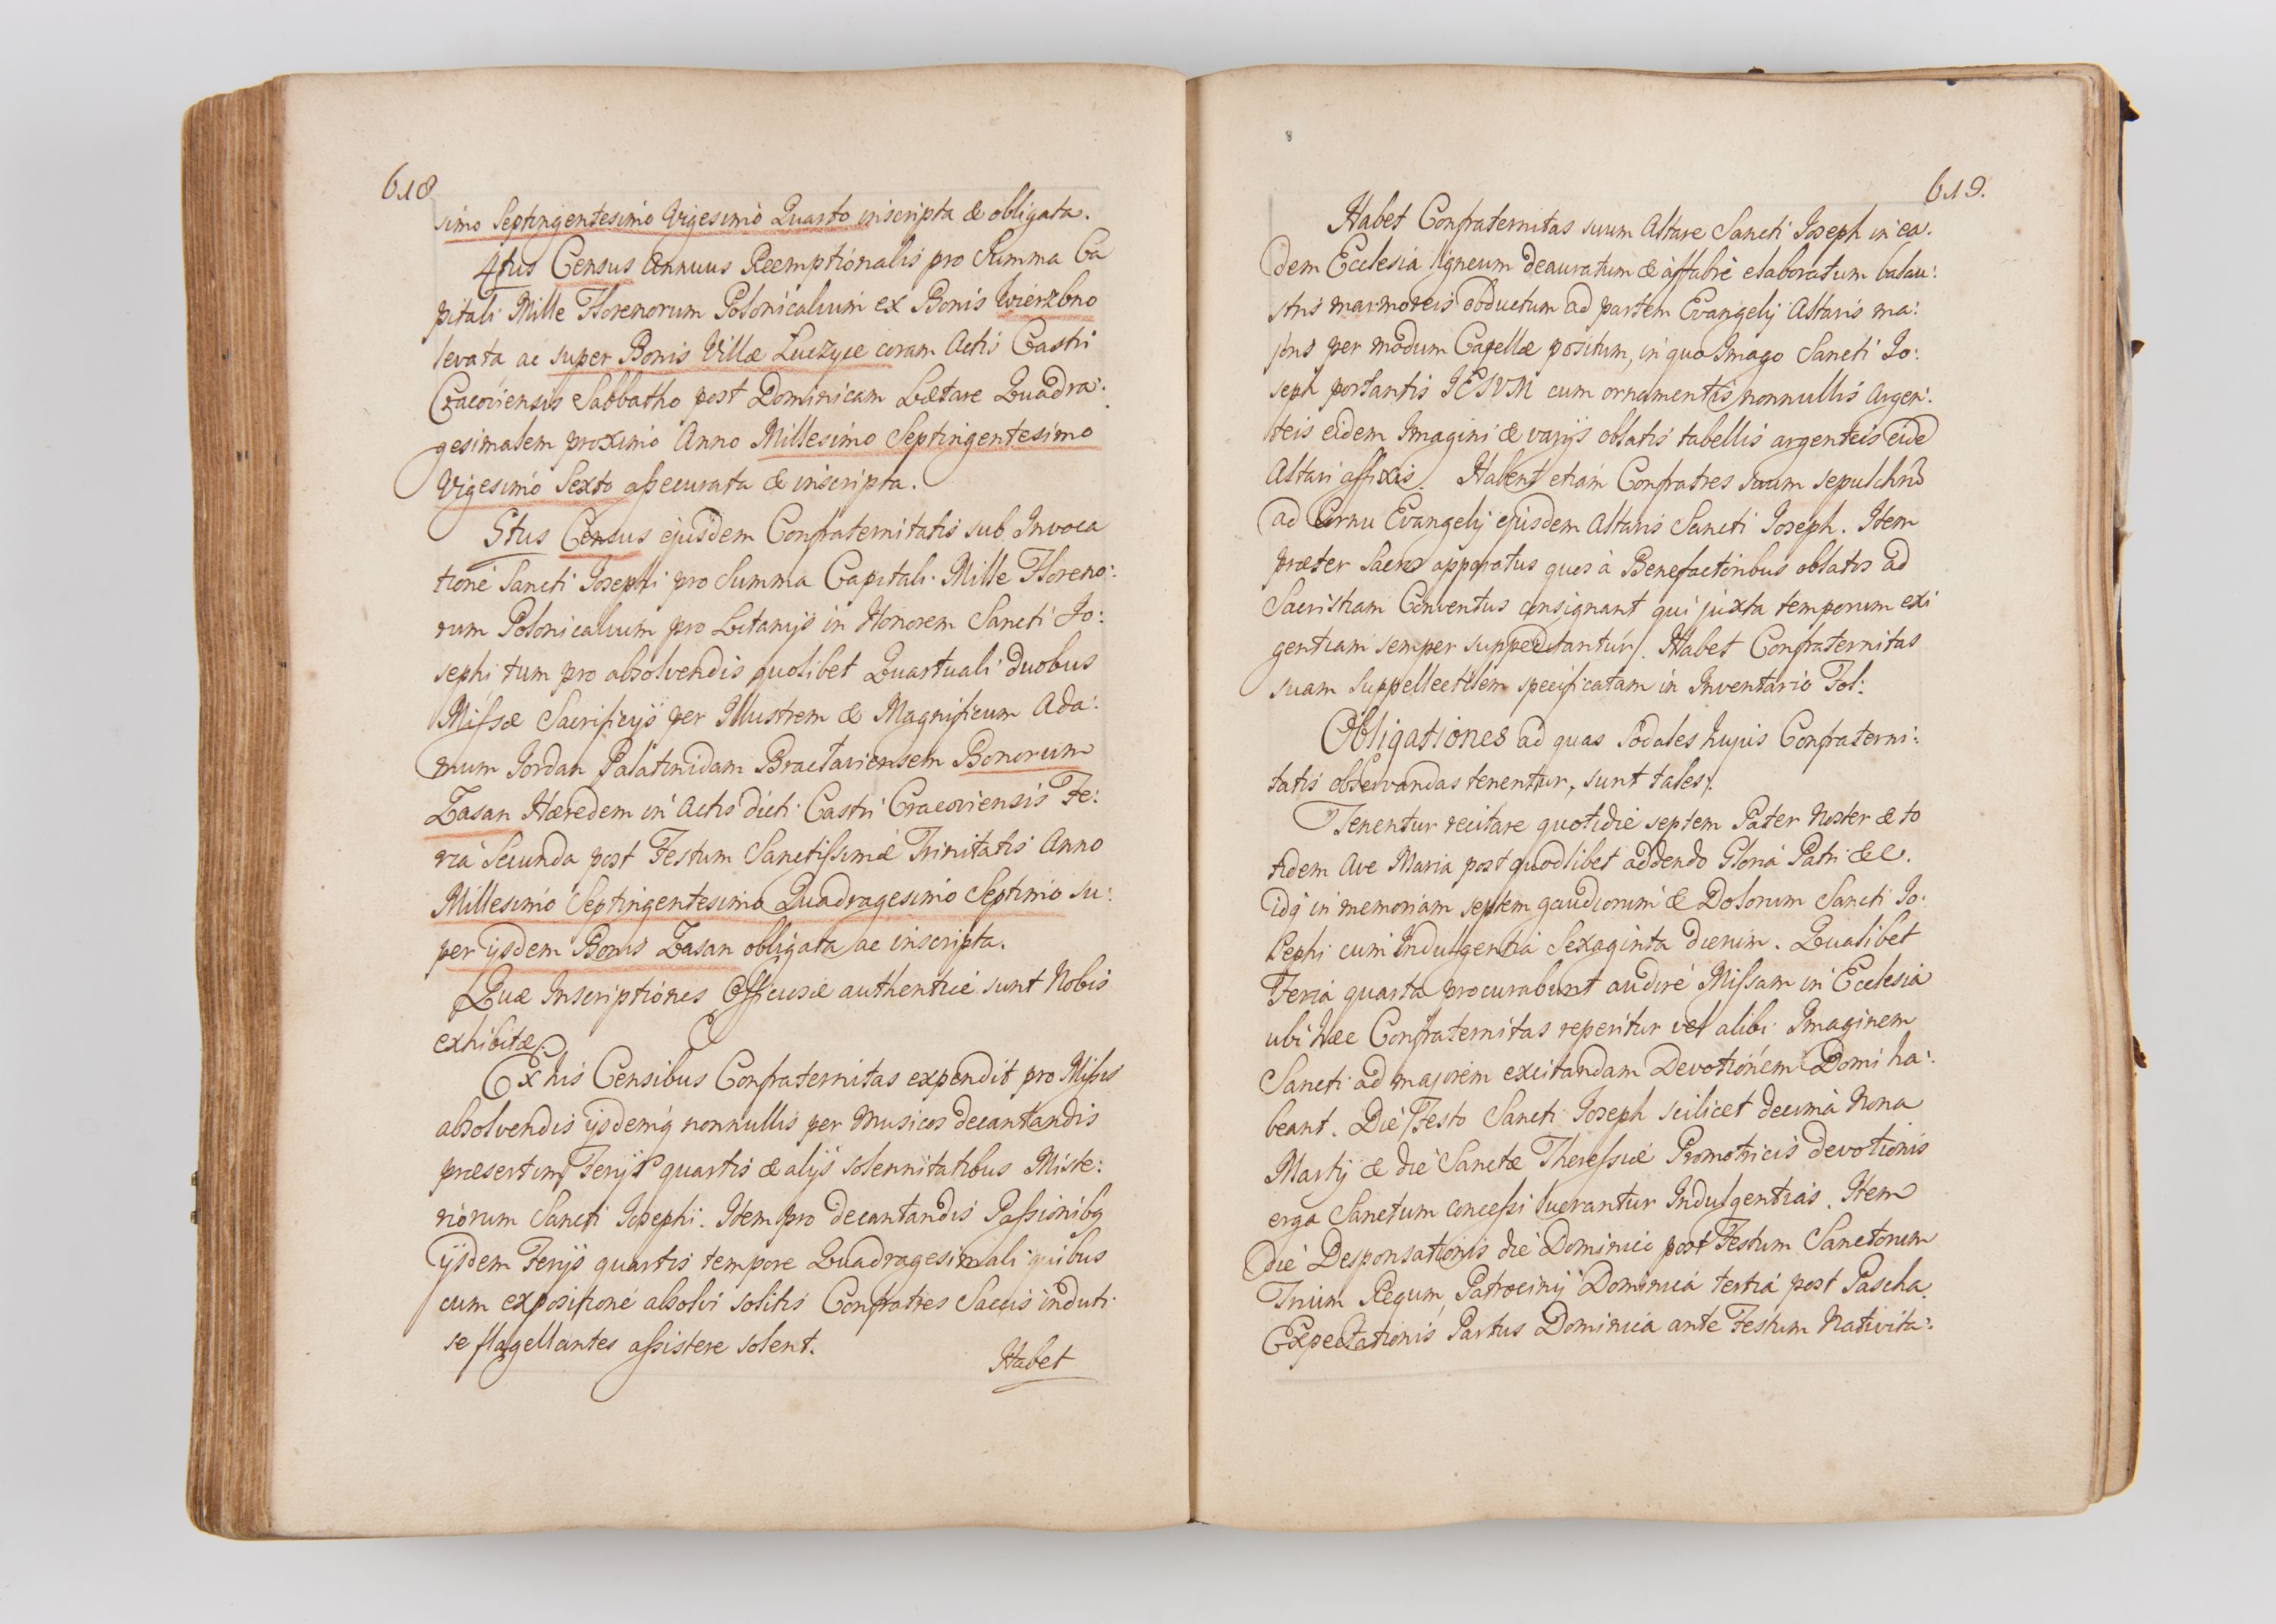 618
simo Septingentesimo Vigesimo Quarto inscripta & obligata.
4tus Census Annuus Reemptionalis pro Summa Ca
pitali Mille Florenorum Polonicalium ex Bonis Wierzbno
levata ac super Bonis Villæ Luczyce coram Actis Castri
Cracoviensis Sabbatho post Dominicam Lætare Quadra:
gesimalem proximo Anno Millesimo Septingentesimo
Vigesimo Sexto assecurata & inscripta.
5tus Census ejusdem Confraternitatis sub Invoca
tione Sancti Josephi pro Summa Capitali Mille Floreno:
rum Polonicalium pro Litanijs in Honorem Sancti Jo:
sephi tum pro absolvendis quolibet Quartuali duobus
Missæ Sacrificijs per Illustrem & Magnificum Ada:
mum Jordan Palatinidam Braclaviensem Bonorum
Zasan Hæredem in Actis dicti Castri Cracoviensis Fe:
ria Secunda post Festum Sanctissimæ Trinitatis Anno
Millesimo Septingentesimo Quadragesimo Septimo su:
per ijsdem Bonis Zasan obligata ac inscripta.
Quæ Inscriptiones Officiosæ authenticè sunt Nobis
exhibitæ.
Ex his Censibus Confraternitas expendit pro Missis
absolvendis ijsdemq nonnullis per Musicos decantandis
præsertim Ferijs quartis & alijs solennitatibus Miste:
riorum Sancti Josephi. Item pro decantandis Passionibq
ijsdem Ferijs quartis tempore Quadragesimali quibus
cum expositione absolvi solitis Confratres Saccis induti
se flagellantes assistere solent.
Habet
619.
Habet Confraternitas suum Altare Sancti Joseph in ea.
dem Ecclesia ligneum deauratum & affabrè elaboratum balau:
stris marmoreis obductum ad partem Evangelij Altaris ma:
joris per modum Capellæ positum, in quo Imago Sancti Jo:
seph portantis JESVM cum ornamentis nonnullis Argen:
teis eidem Imagini & varijs oblatis tabellis argenteis eidē
Altari affixis. Habent etiam Confratres suum sepulchrū
ad Cornu Evangelij ejusdem Altaris Sancti Joseph. Item
præter Sacros apparatus quos à Benefactoribus oblatos ad
Sacristiam Conventus consignant qui juxta temporum exi
gentiam semper suppeditantur. Habet Confraternitas
suam Suppellectilem specificatam in Inventario Fol:
Obligationes ad quas Sodales hujus Confraterni:
tatis observandas tenentur, sunt tales.
Tenentur recitare quotidie septem Pater Noster & to
tidem Ave Maria post quodlibet addendo Gloria Patri &c.
idq in memoriam septem gaudiorum & Dolorum Sancti Jo:
sephi cum Indulgentia Sexaginta dierum. Qualibet
Feria quarta procurabunt audire Missam in Ecclesia
ubi hæc Confraternitas reperitur vel alibi Imaginem
Sancti ad majorem excitandam Devotionem Domi ha:
beant. Die Festo Sancti Joseph scilicet decima Nona
Martij & die Sanctæ Theressiæ Promotricis devotionis
erga Sanctum concessi lucrantur Indulgentias. Item
die Desponsationis die Dominico post Festum Sanctorum
Trium Regum, Patrocinij Dominica tertia post Pascha.
Expectationis Partus Dominica ante Festum Nativita: